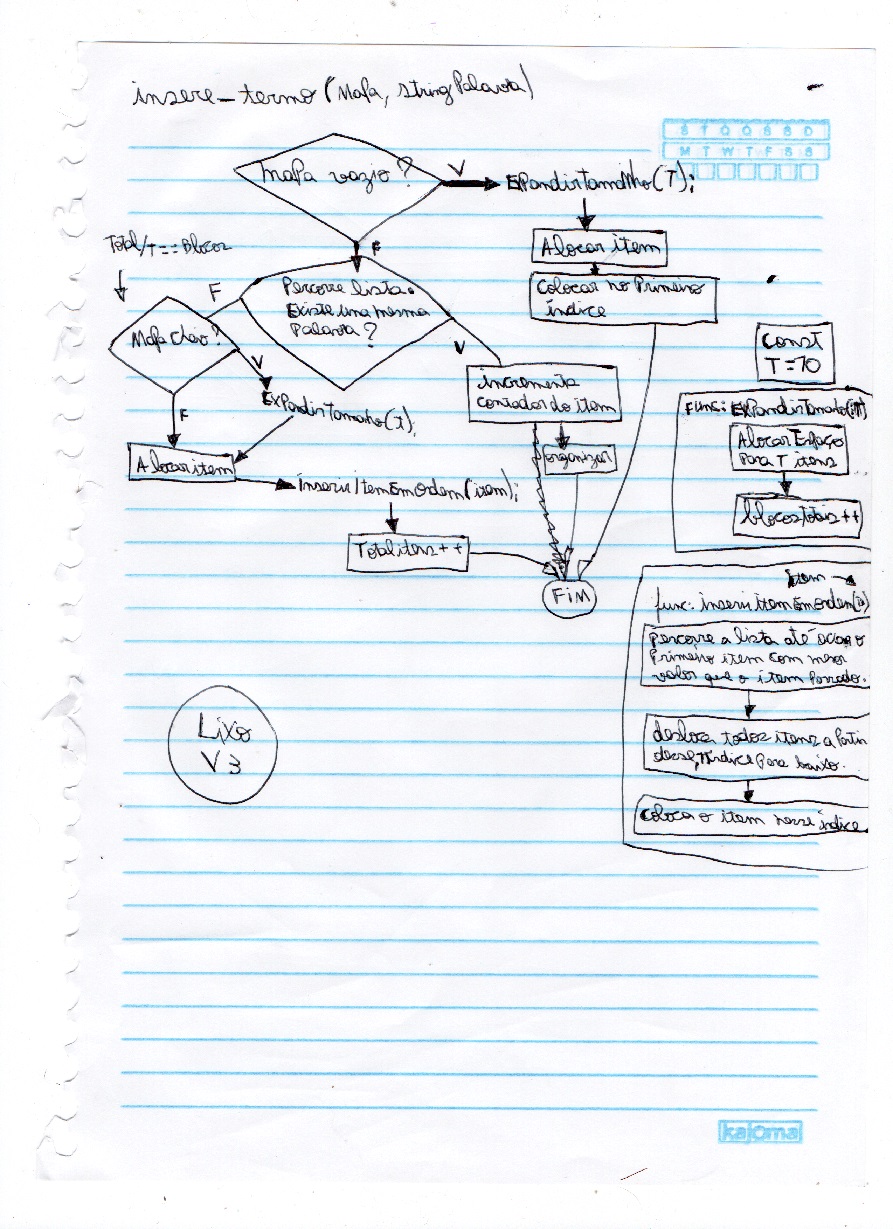 insere_termo (Mapa, string Palavra)
S T Q Q S S D
M T W T F S S
Mapa vazio?
V
ExPandirTamanho(T);
F
Alocar item
Colocar no Primeiro
índice
Total/T == Blocos
F
Percorre lista.
Existe uma mesma
Palavra?
V
Mapa cheio?
V
F
ExPandirTamanho(T);
incrementa
contador do item
organizar
Const
T=10
Func: ExPandirTamanho(T)
Alocar Espaço
Para T itens
blocosTotais++
Alocar item
InserirItemEmOrdem(item);
Total itens ++
FiM
item
func: inserir item Em ordem
Percorre a lista até achar o
Primeiro item com menor
valor que o item Passado.
desloca todos itens a Partir
desse índice Para baixo.
Colocar o item nesse índice
Lixo
V3
kajoma